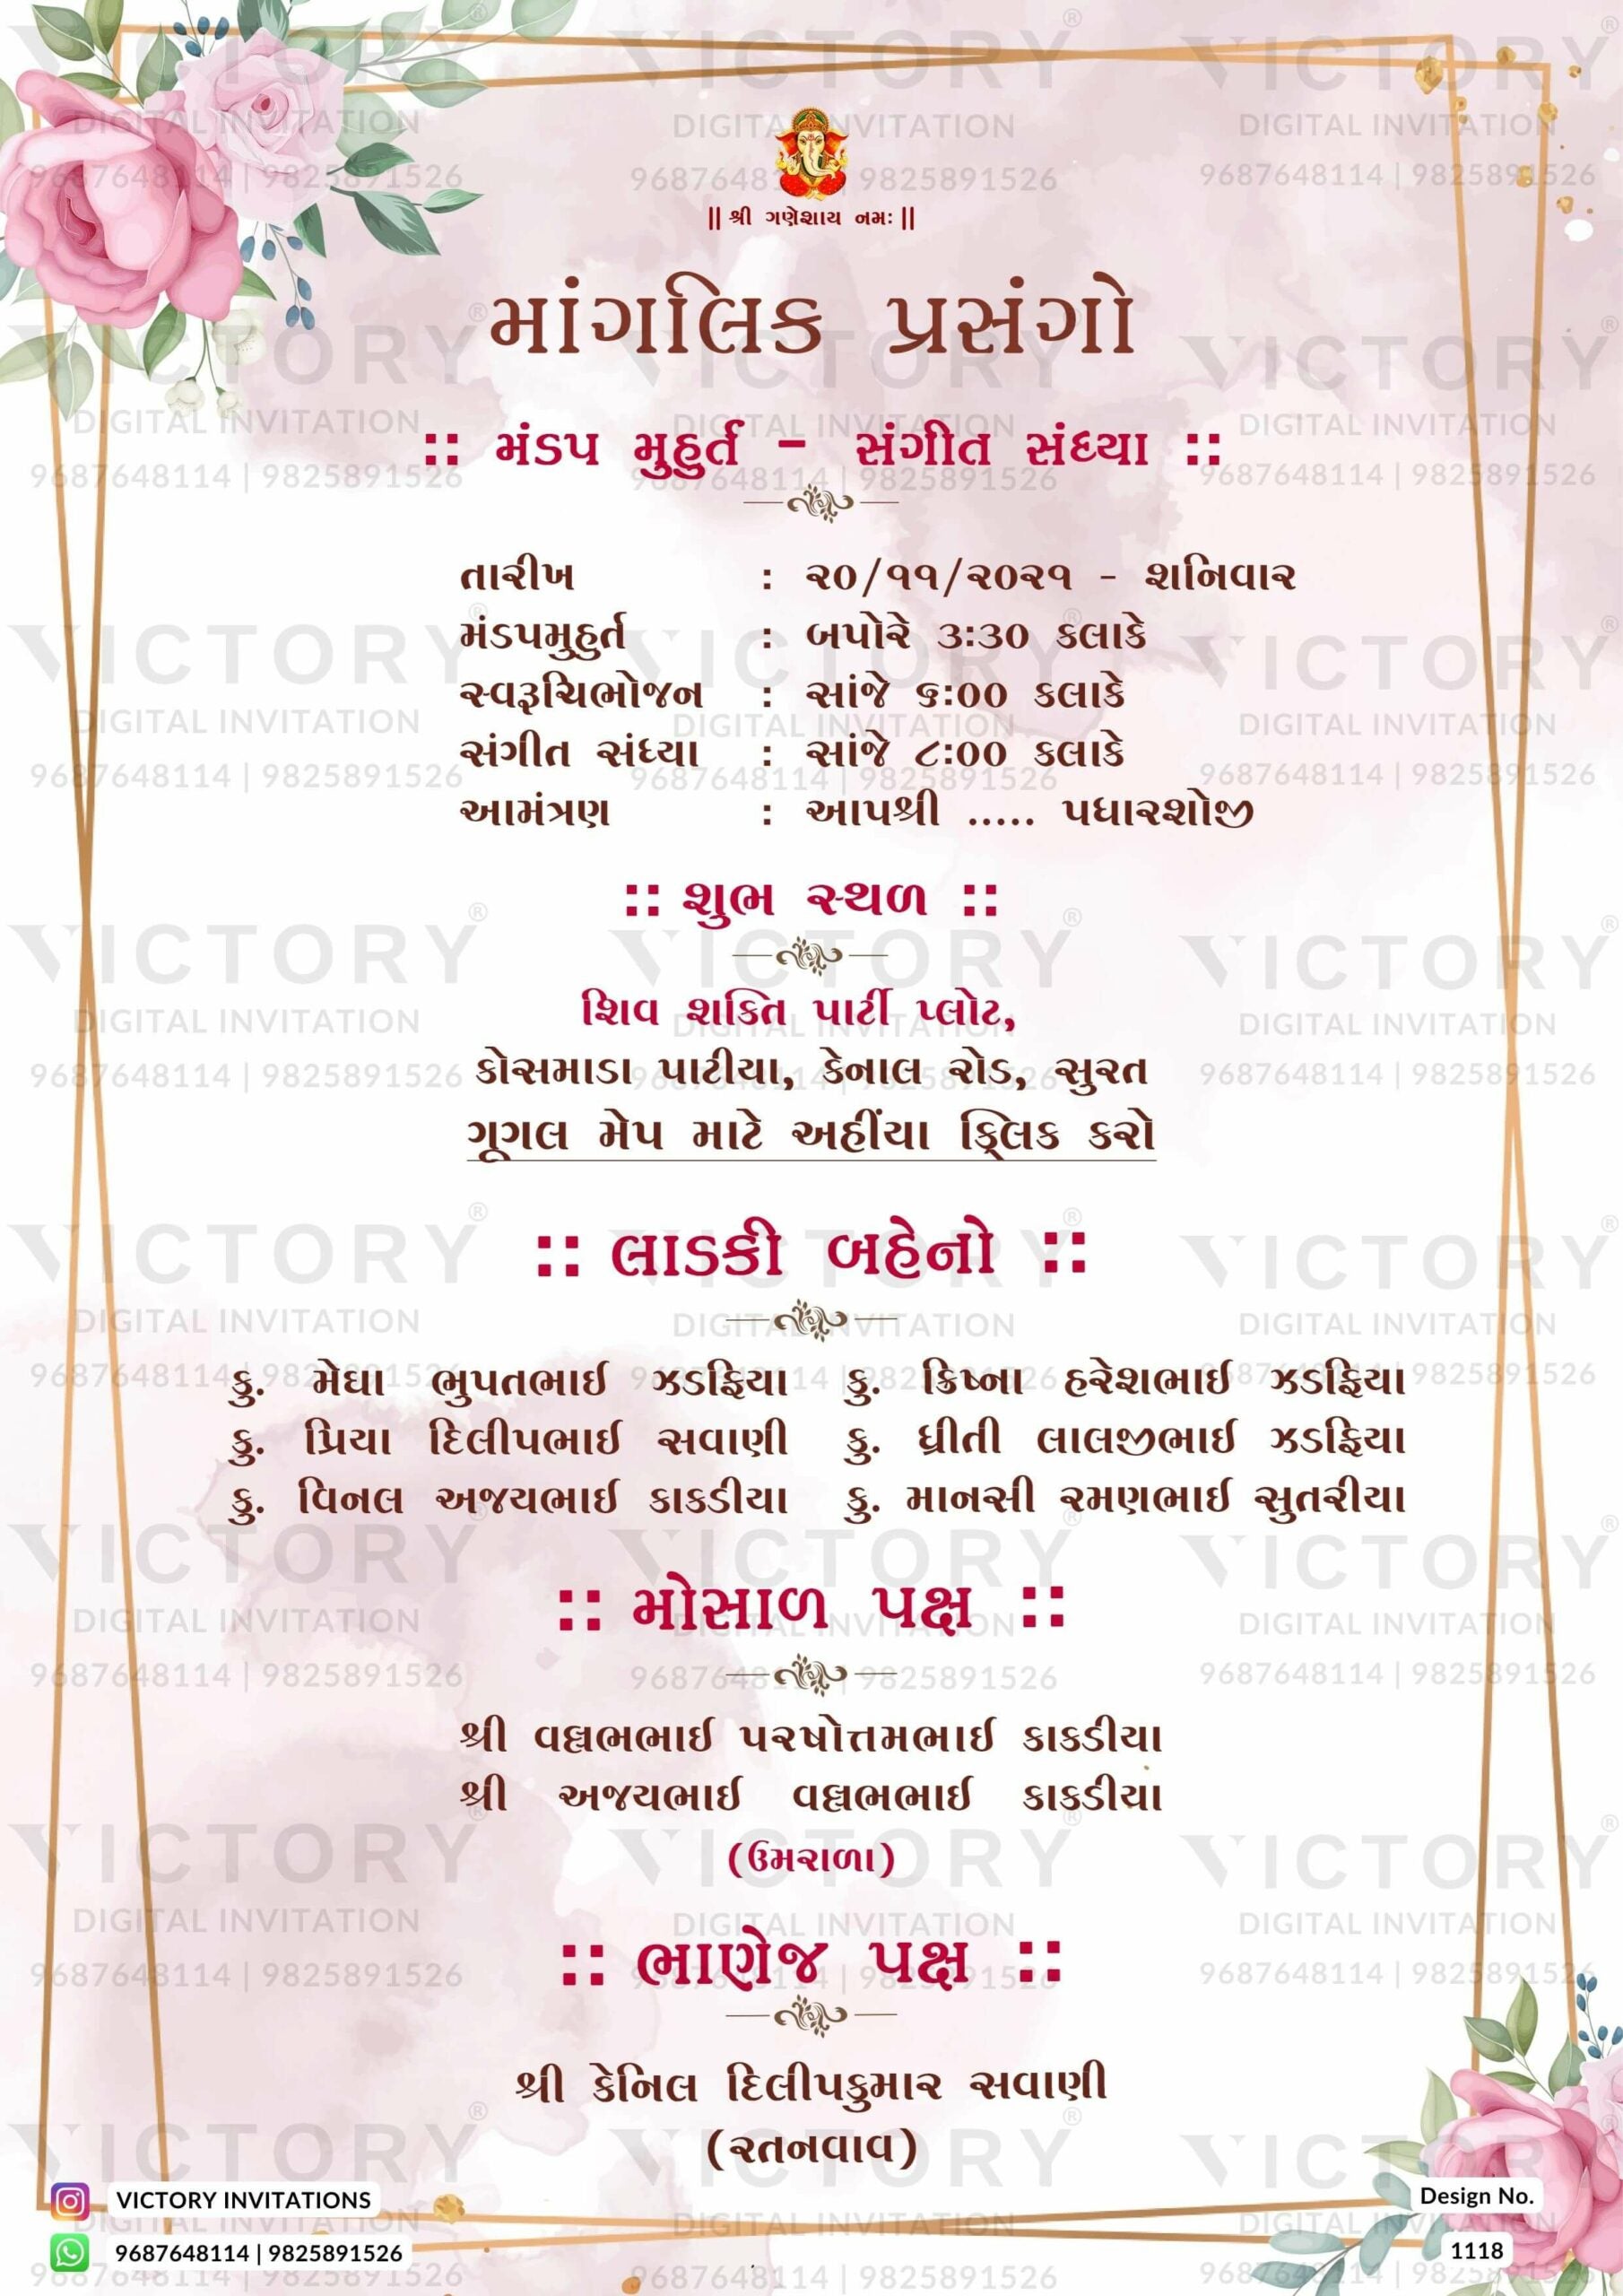 || શ્રી ગણેશાય નમઃ ||
માંગલિક પ્રસંગો
:: મંડપ મુહુર્ત - સંગીત સંધ્યા ::
તારીખ : ૨૦/૧૧/૨૦૨૧ - શનિવાર
મંડપમુહુર્ત : બપોરે ૩:૩૦ કલાકે
સ્વરૂચિભોજન : સાંજે ૬:૦૦ કલાકે
સંગીત સંધ્યા : સાંજે ૮:૦૦ કલાકે
આમંત્રણ : આપશ્રી ..... પધારશોજી
:: શુભ સ્થળ ::
શિવ શક્તિ પાર્ટી પ્લોટ,
કોસમાડા પાટીયા, કેનાલ રોડ, સુરત
ગૂગલ મેપ માટે અહીંયા ક્લિક કરો
:: લાડકી બહેનો ::
કુ. મેઘા ભુપતભાઈ ઝડફિયા કુ. ક્રિષ્ના હરેશભાઈ ઝડફિયા
કુ. પ્રિયા દિલીપભાઈ સવાણી કુ. ધ્રીતી લાલજીભાઈ ઝડફિયા
કુ. વિનલ અજયભાઈ કાકડીયા કુ. માનસી રમણભાઈ સુતરીયા
:: મોસાળ પક્ષ ::
શ્રી વલ્લભભાઈ પરષોત્તમભાઈ કાકડીયા
શ્રી અજયભાઈ વલ્લભભાઈ કાકડીયા
(ઉમરાળા)
:: ભાણેજ પક્ષ ::
શ્રી કેનિલ દિલીપકુમાર સવાણી
(રતનવાવ)
VICTORY INVITATIONS
9687648114 | 9825891526
Design No.
1118
VICTORY
DIGITAL INVITATION
9687648114 | 9825891526